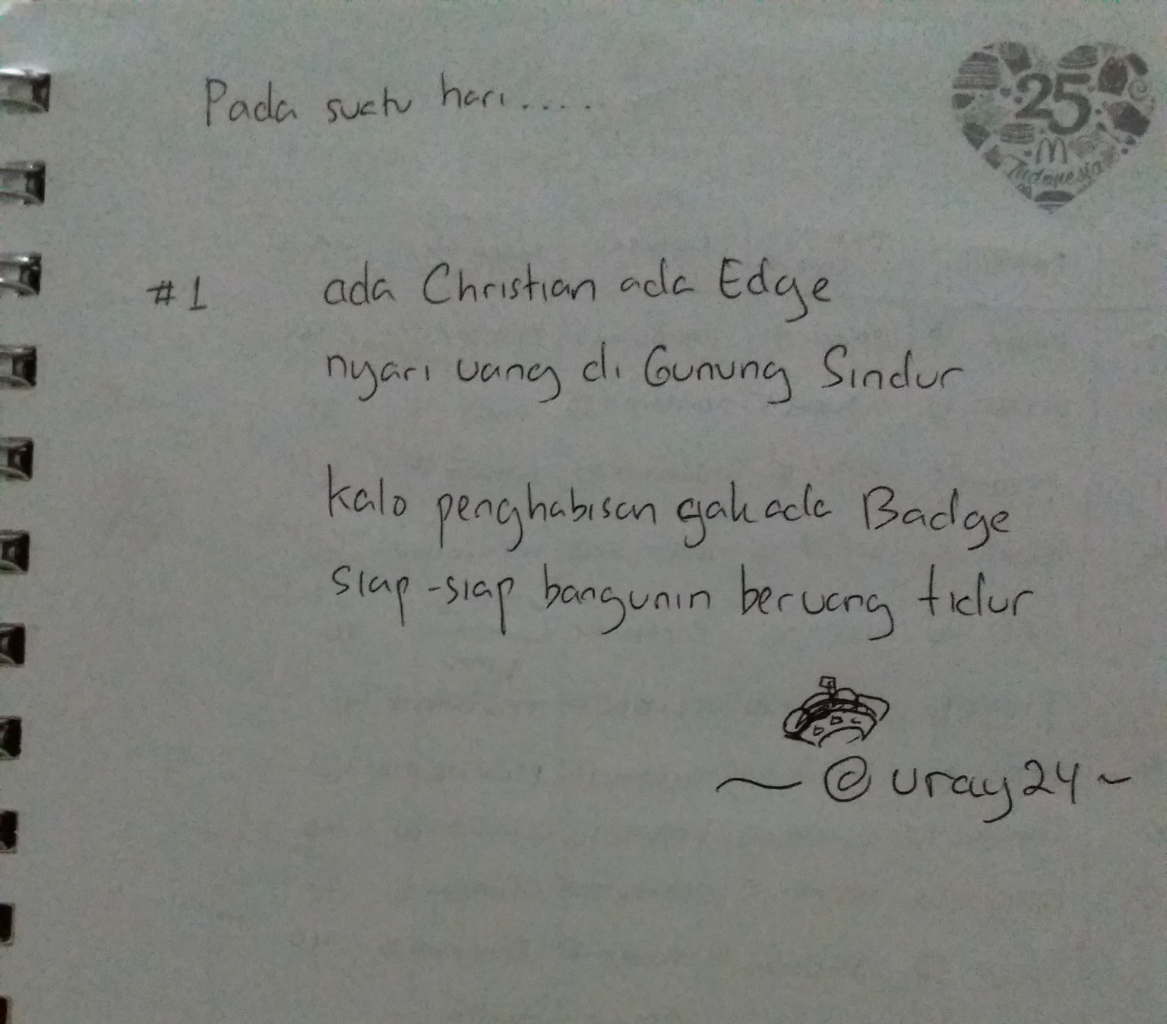 Pada suatu hari.....
25
M
Indonesia
#1 ada Christian ada Edge
nyari uang di Gunung Sindur
kalo penghabisan gak ada Badge
siap-siap bangunin beruang tidur
~ @uray24 ~